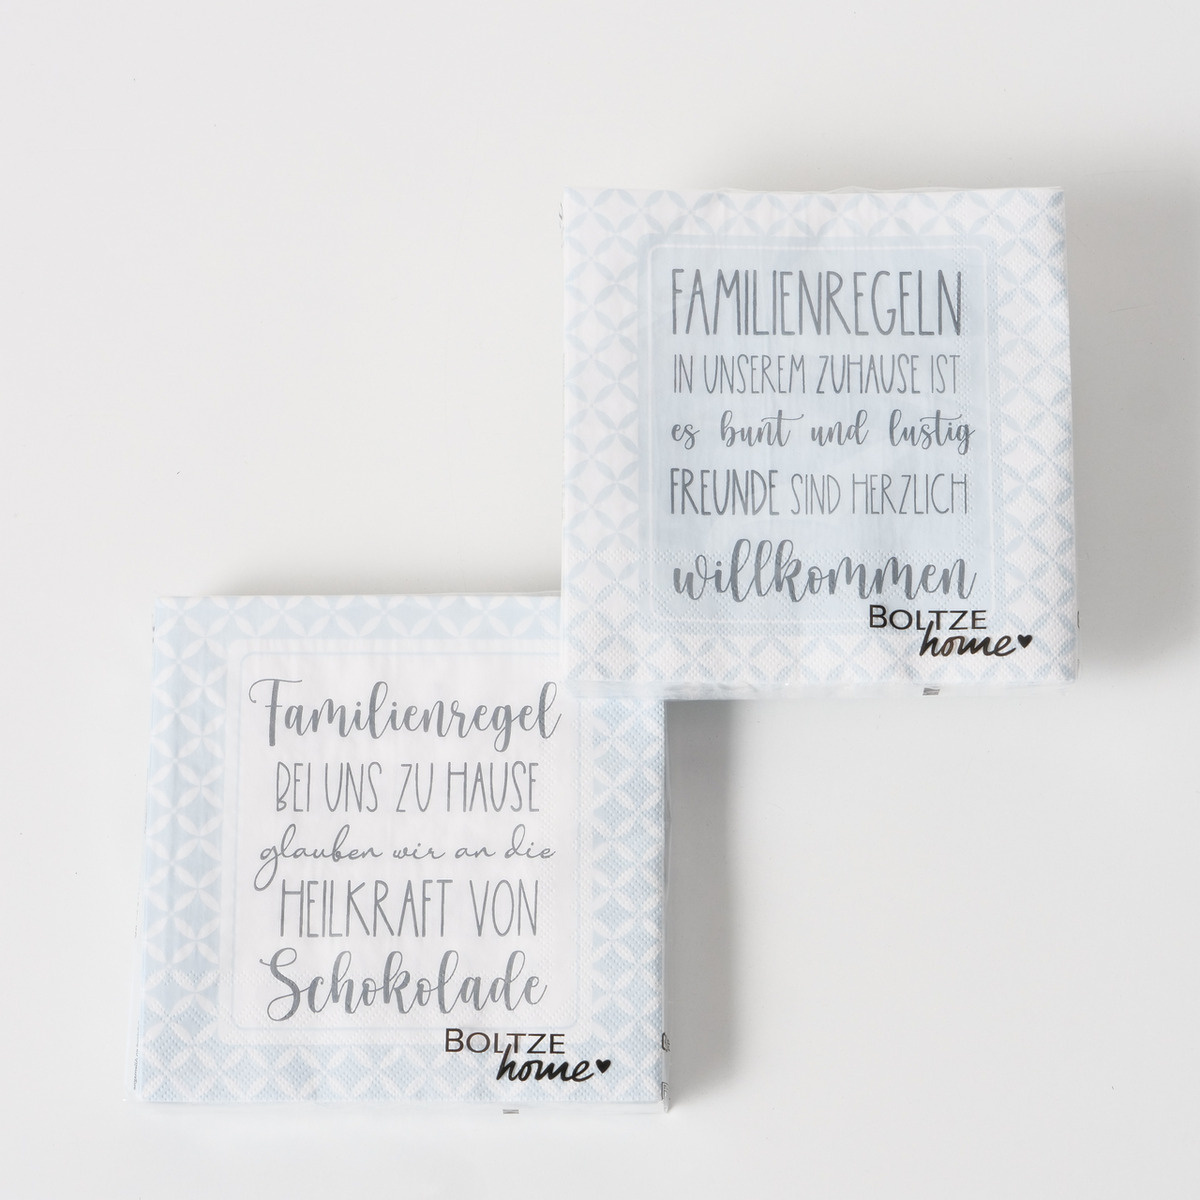 FAMILIENREGELN
IN UNSEREM ZUHAUSE IST
es bunt und lustig
FREUNDE SIND HERZLICH
willkommen
BOLTZE
home
Familienregel
BEI UNS ZU HAUSE
glauben wir an die
HEILKRAFT VON
Schokolade
BOLTZE
home